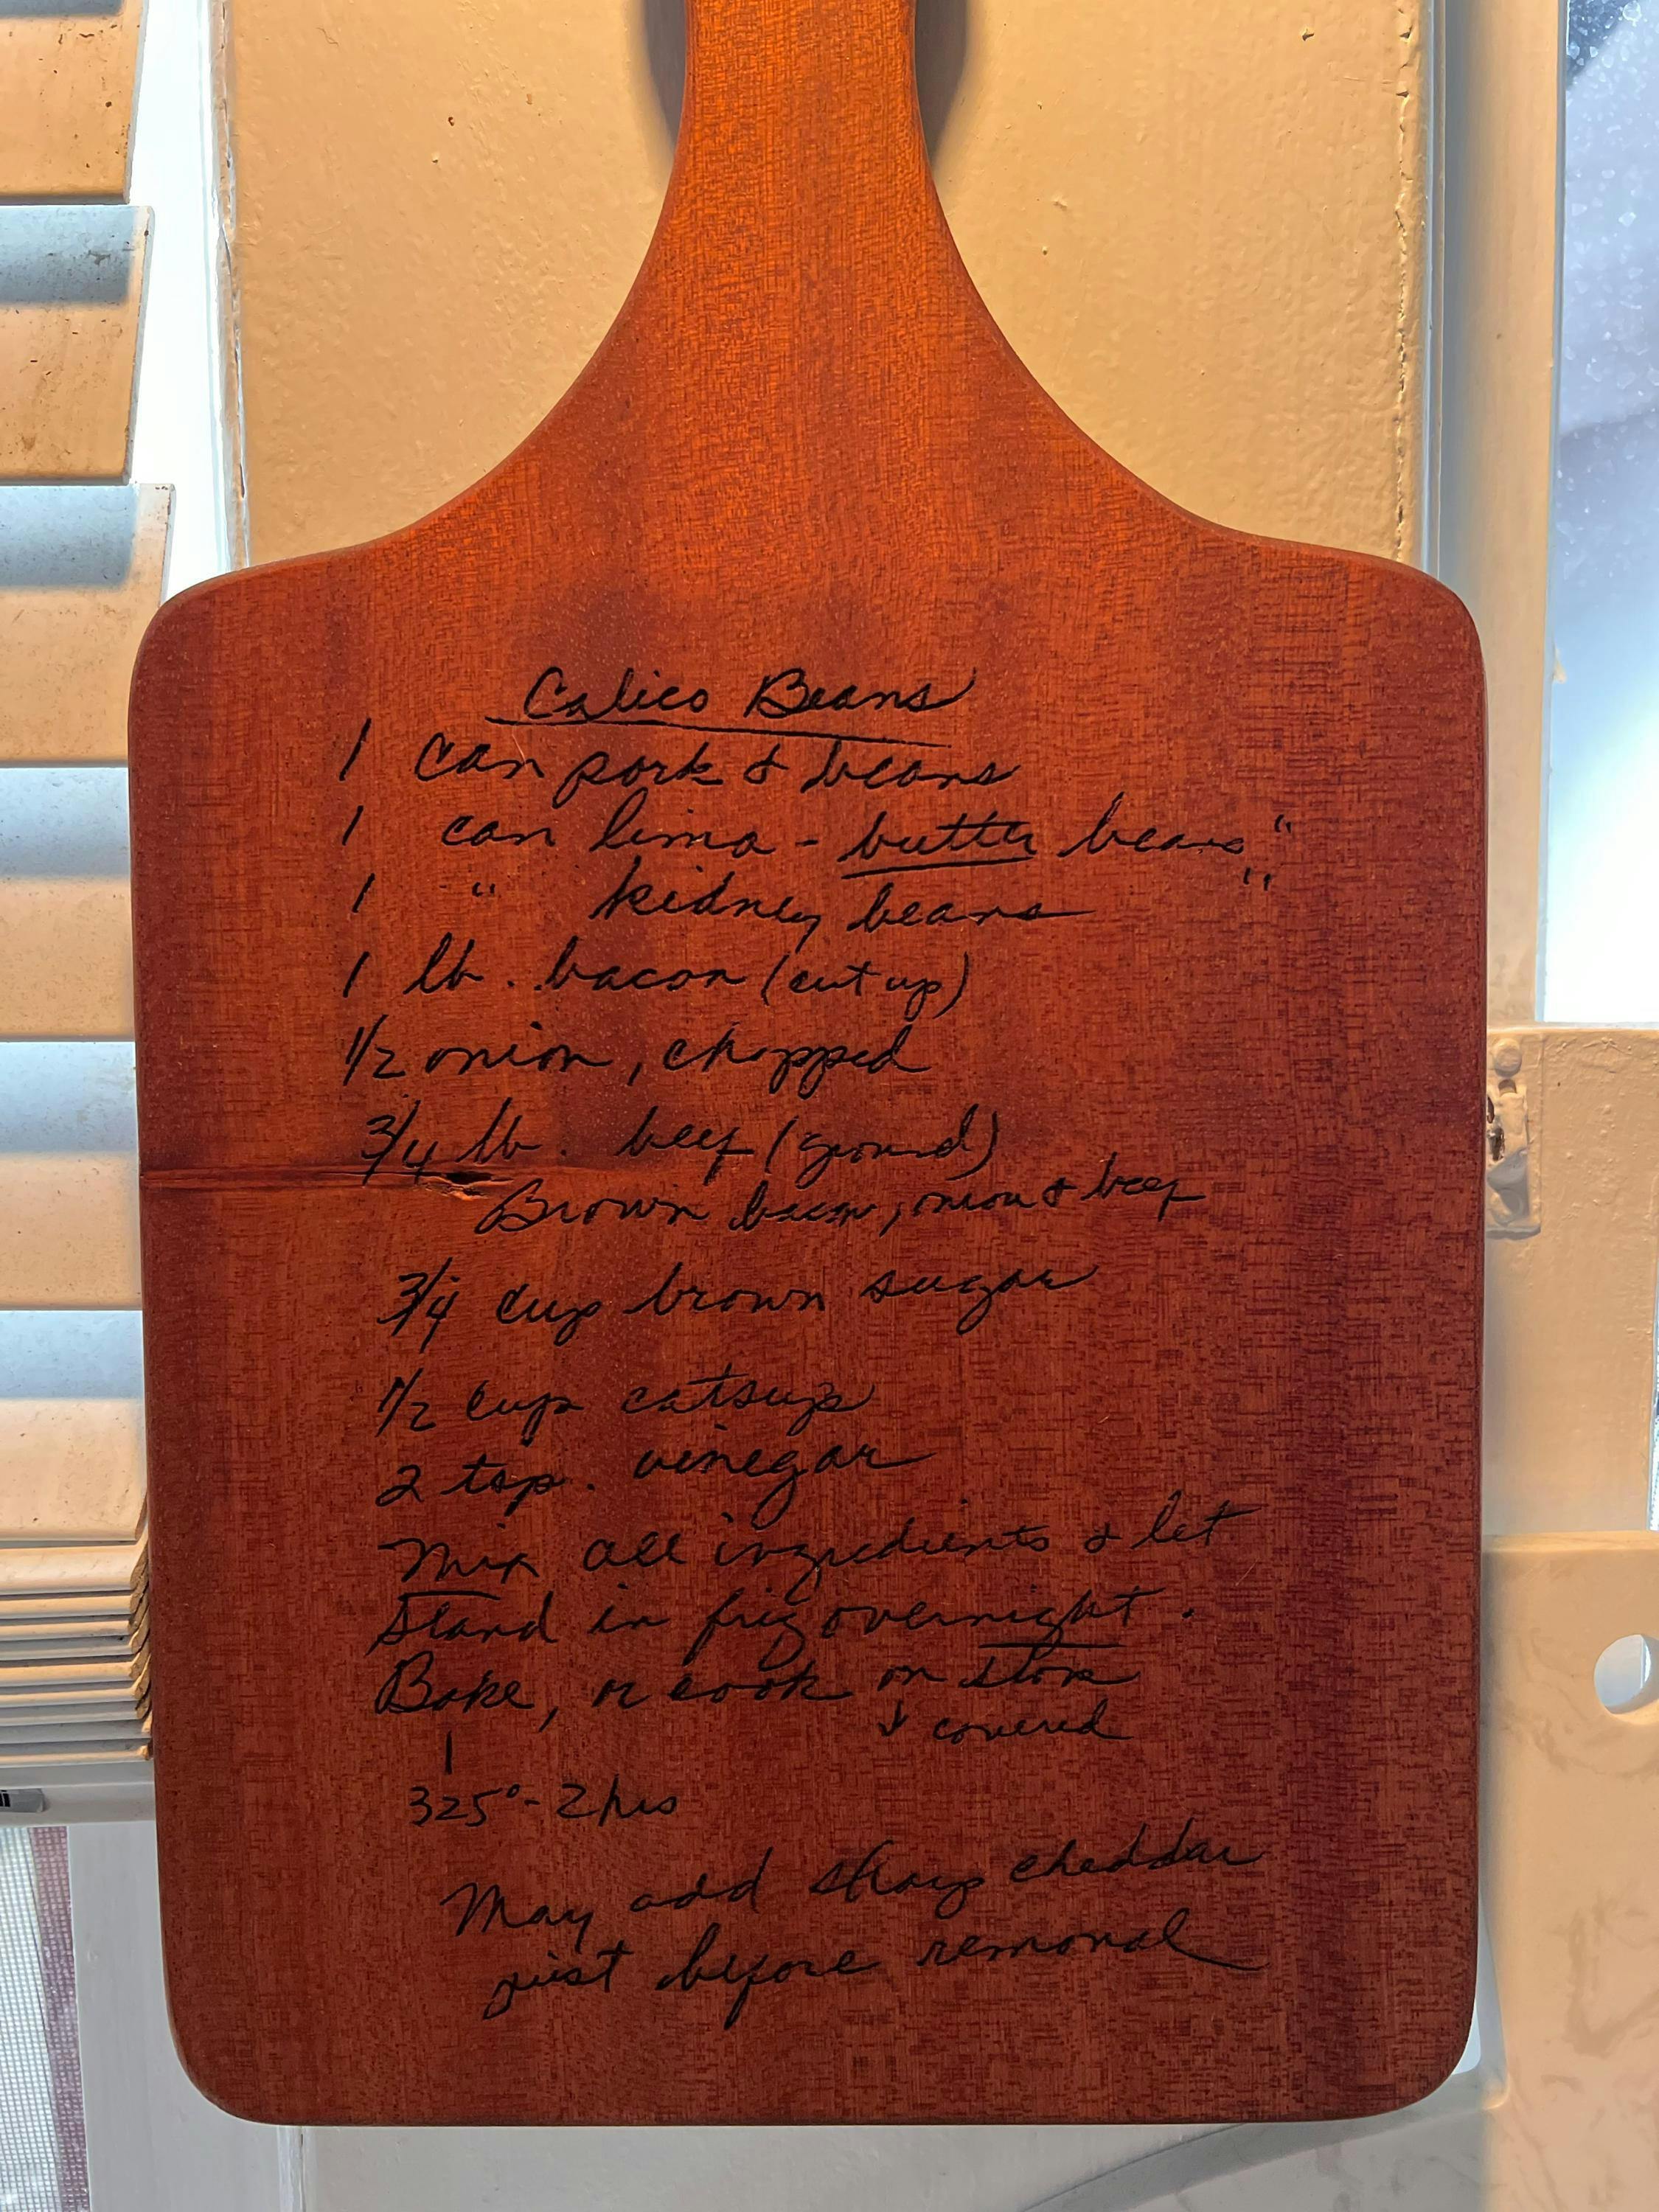 Calico Beans
1 can pork & beans
1 can lima - butter beans "
1 " kidney beans "
1 lb. bacon (cut up)
1/2 onion, chopped
3/4 lb. beef (ground)
Brown bacon, onion & beef
3/4 cup brown sugar
1/2 cup catsup
2 tsp. vinegar
Mix all ingredients & let
stand in frig overnight.
Bake, or cook on stove
↓ covered
325° - 2 hrs
May add sharp cheddar
just before removal